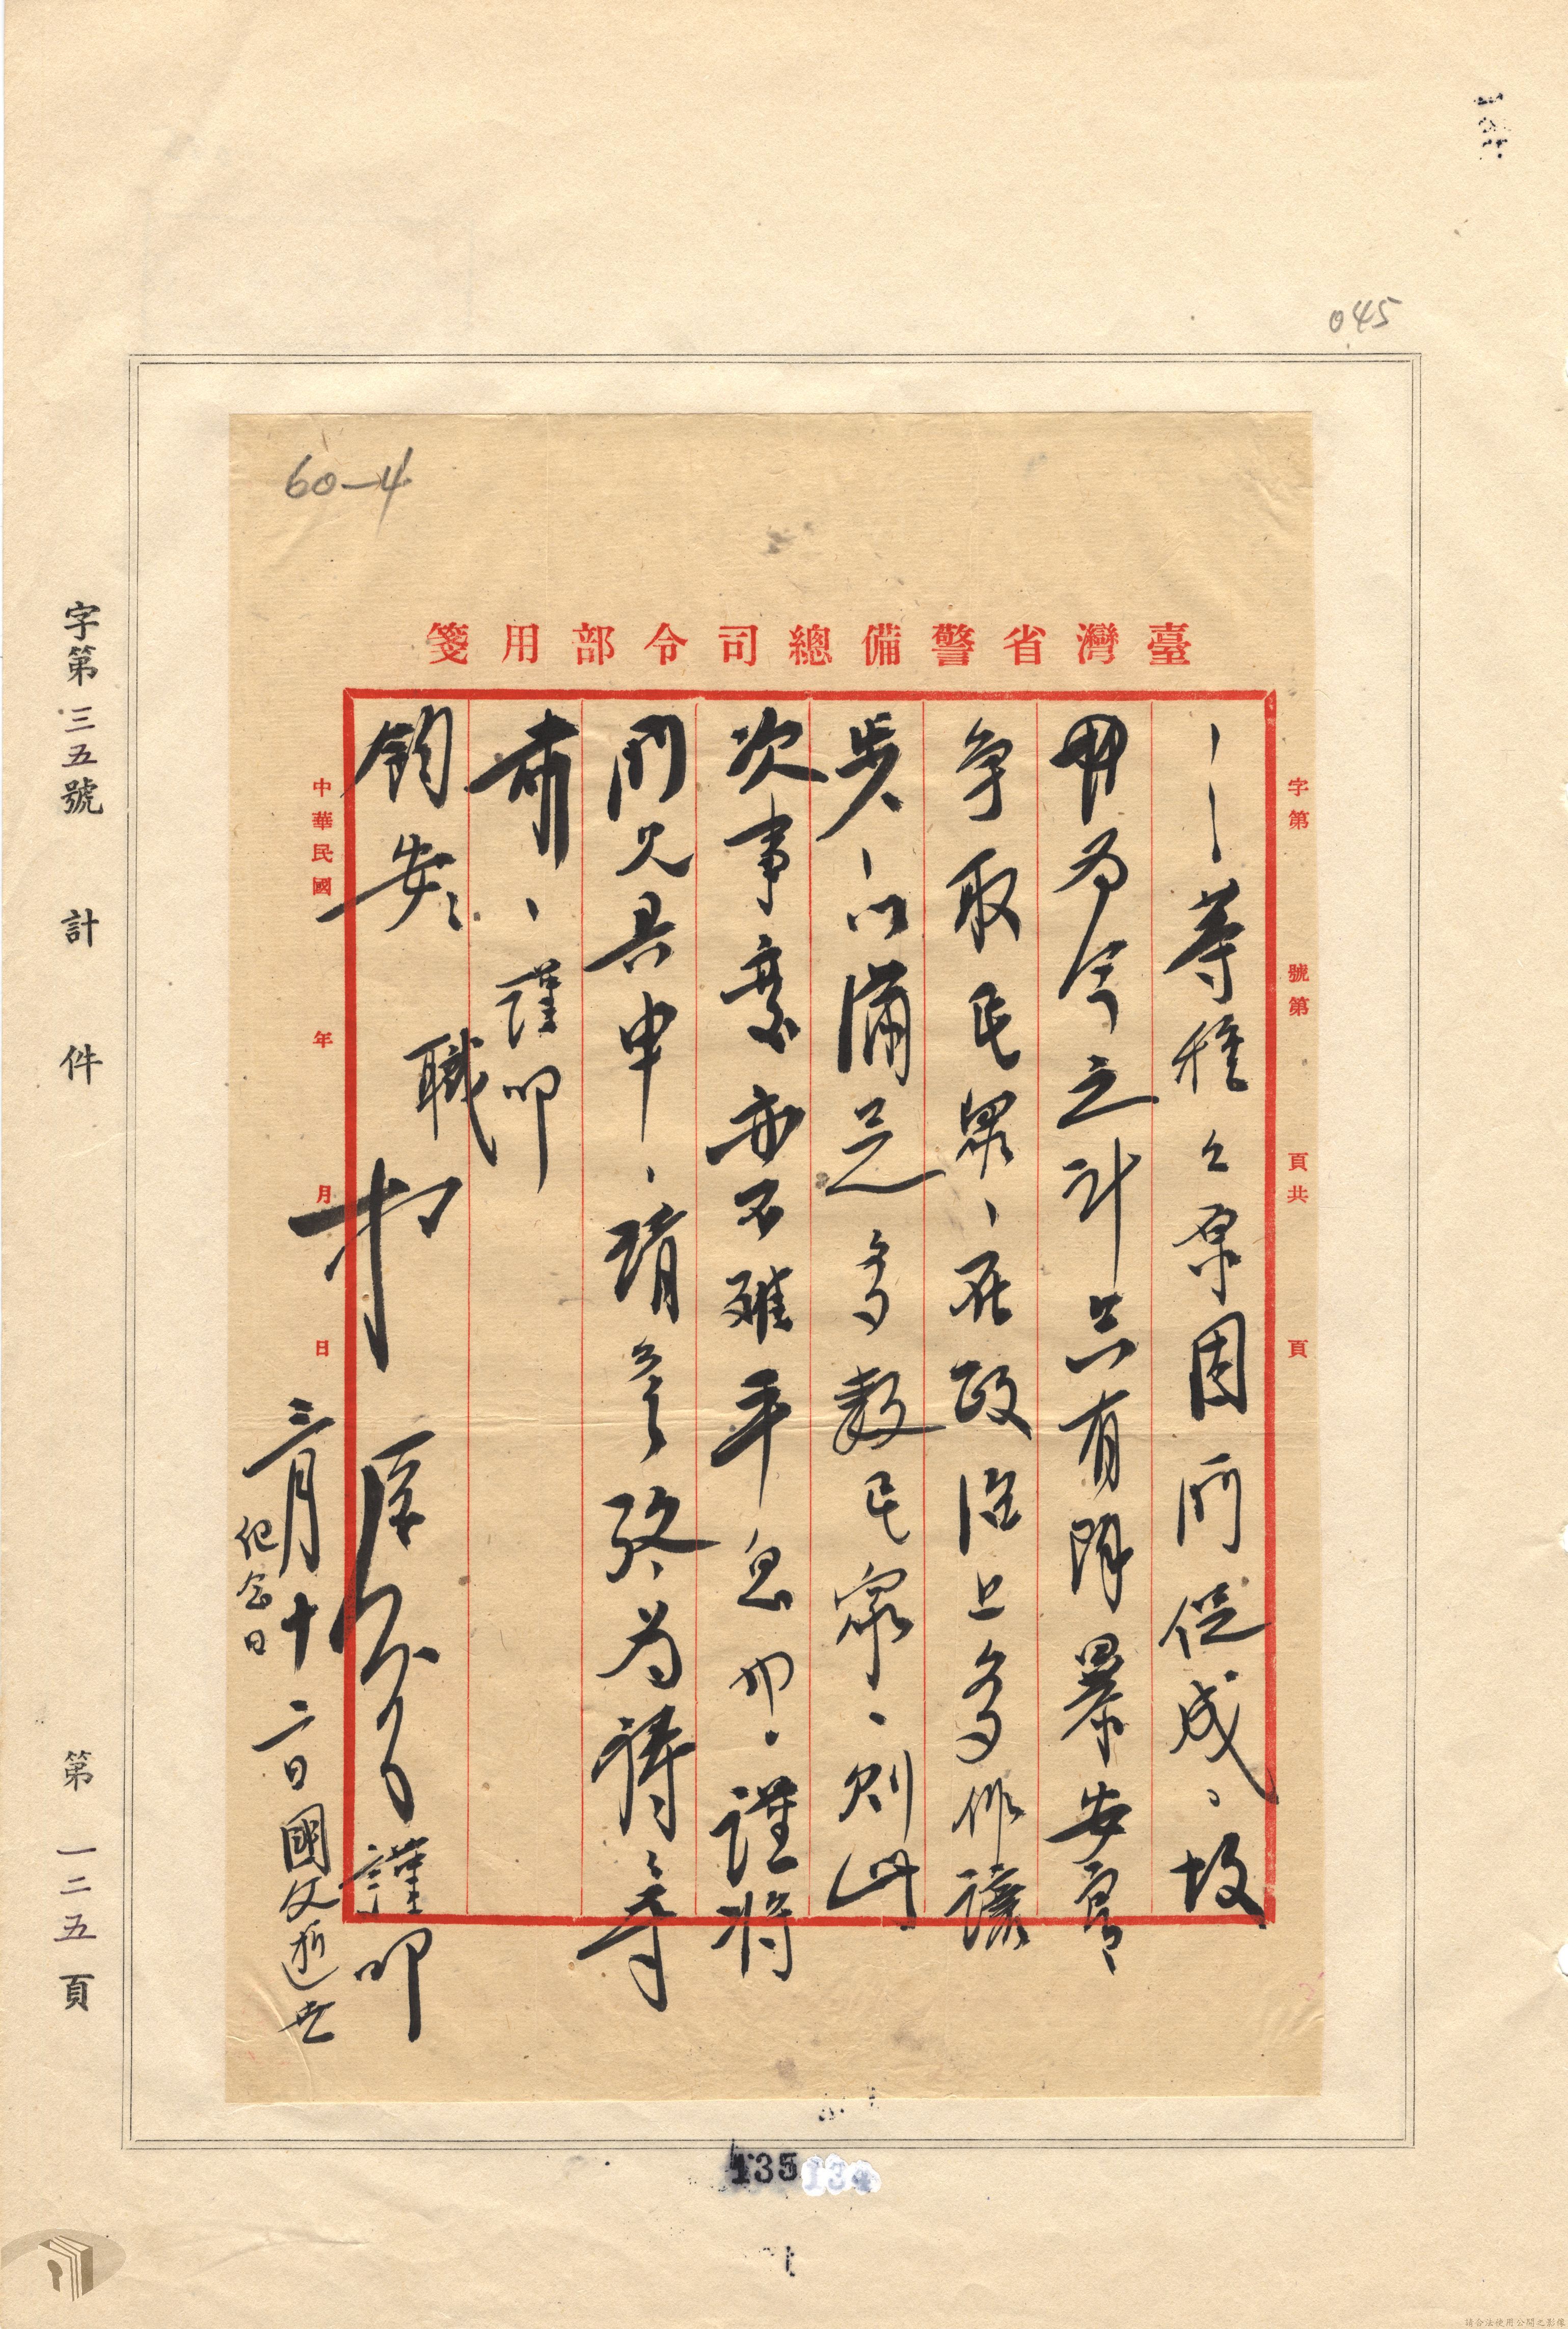 045
60-4
臺灣省警備總司令部用箋
字第 號第 頁共 頁
等種々原因所促成、故
為今之計只有除暴安良
爭取民眾、在政治上多作讓
步、以滿足多數民眾、則此
次事變亦不難平息也。謹將
所見具申、請核為禱專
肅、謹叩
鈞安
職 柯遠芬 謹叩
中華民國 年 月 日
三月十二日國父逝世
紀念日
字第三五號 計 件 第一二五頁
135 134
請合法使用公開之影像